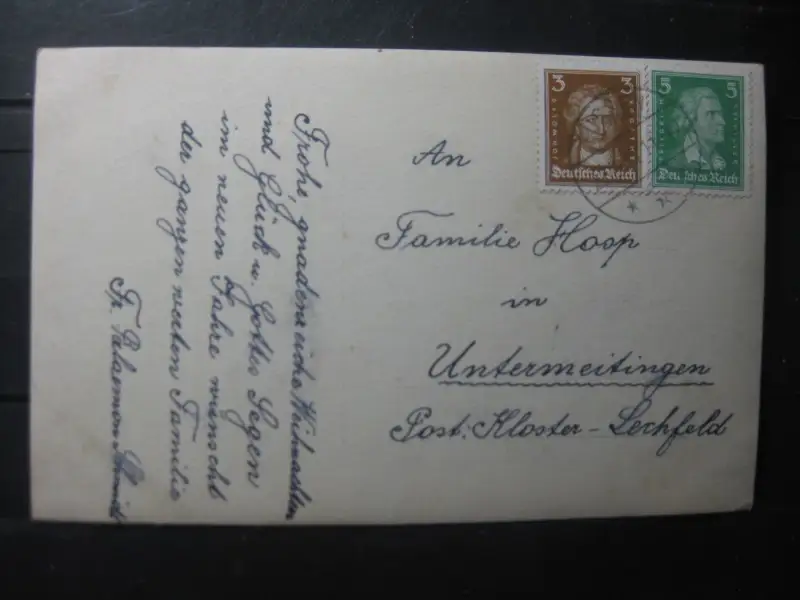 Frohe, gnadenreiche Weihnachten
und Glück u. Gottes Segen
im neuen Jahre wünscht
der ganzen werten Familie
Fr. Palaemon Schmid
An
Familie Hoop
in
Untermeitingen
Post: Kloster-Lechfeld
3 3
Deutsches Reich
5 5
FRIEDRICH
Deutsches Reich